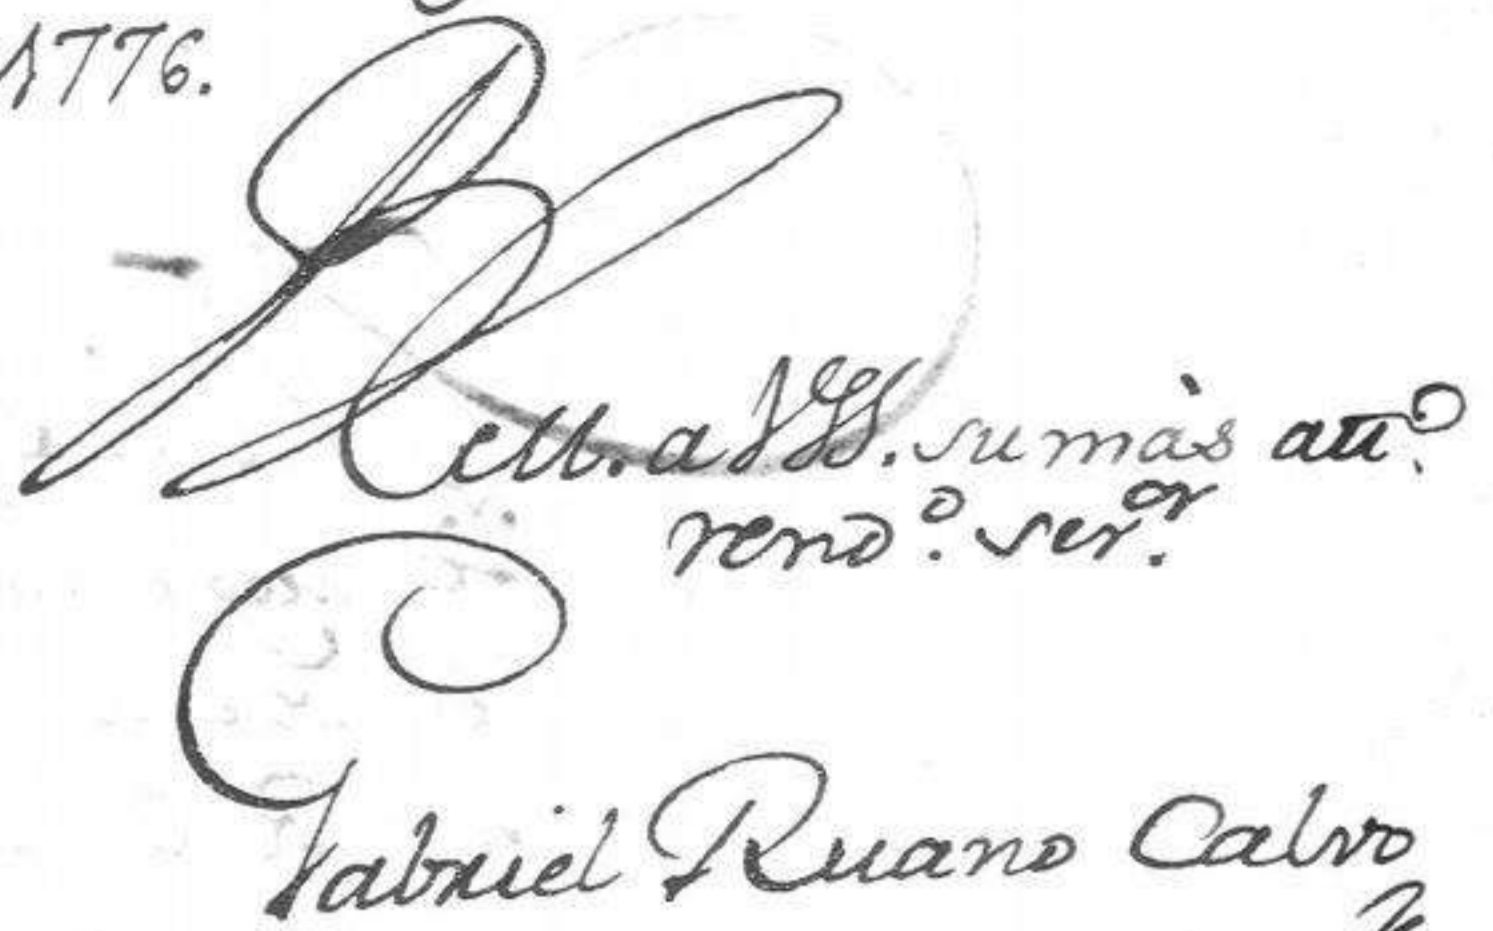 1776.
a VSS. su más att.º
rend.º ser.or
Gabriel Ruano Calvo